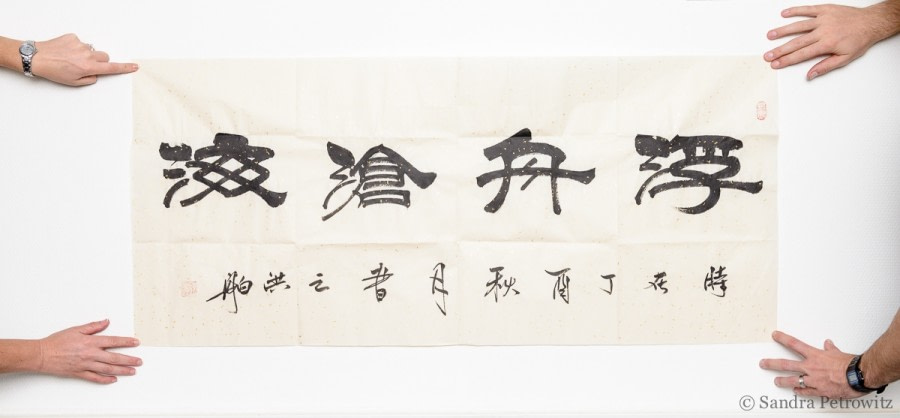 浮舟滄海
時在丁酉秋月書之洪舶
© Sandra Petrowitz